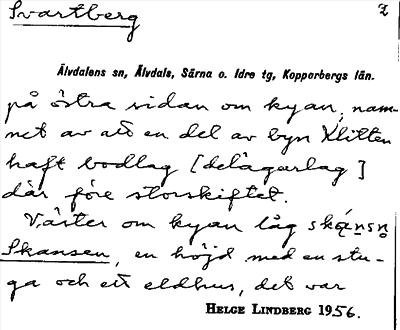 Svartberg 2
Älvdalens sn, Älvdals, Särna o. Idre tg, Kopparbergs län.
på östra sidan om kyan, nam-
net av att en del av byn Klitten
haft bodlag [delägarlag]
där före storskiftet.
Väster om kyan låg
Skansen, en höjd med en stu-
ga och ett eldhus, det var
HELGE LINDBERG 1956.